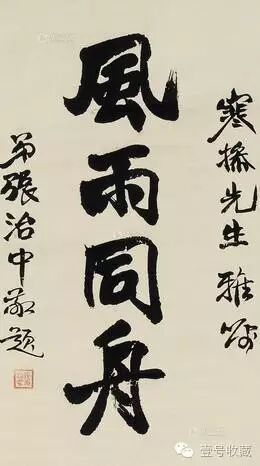 寒操先生雅属
風雨同舟
弟張治中敬題
壹号收藏